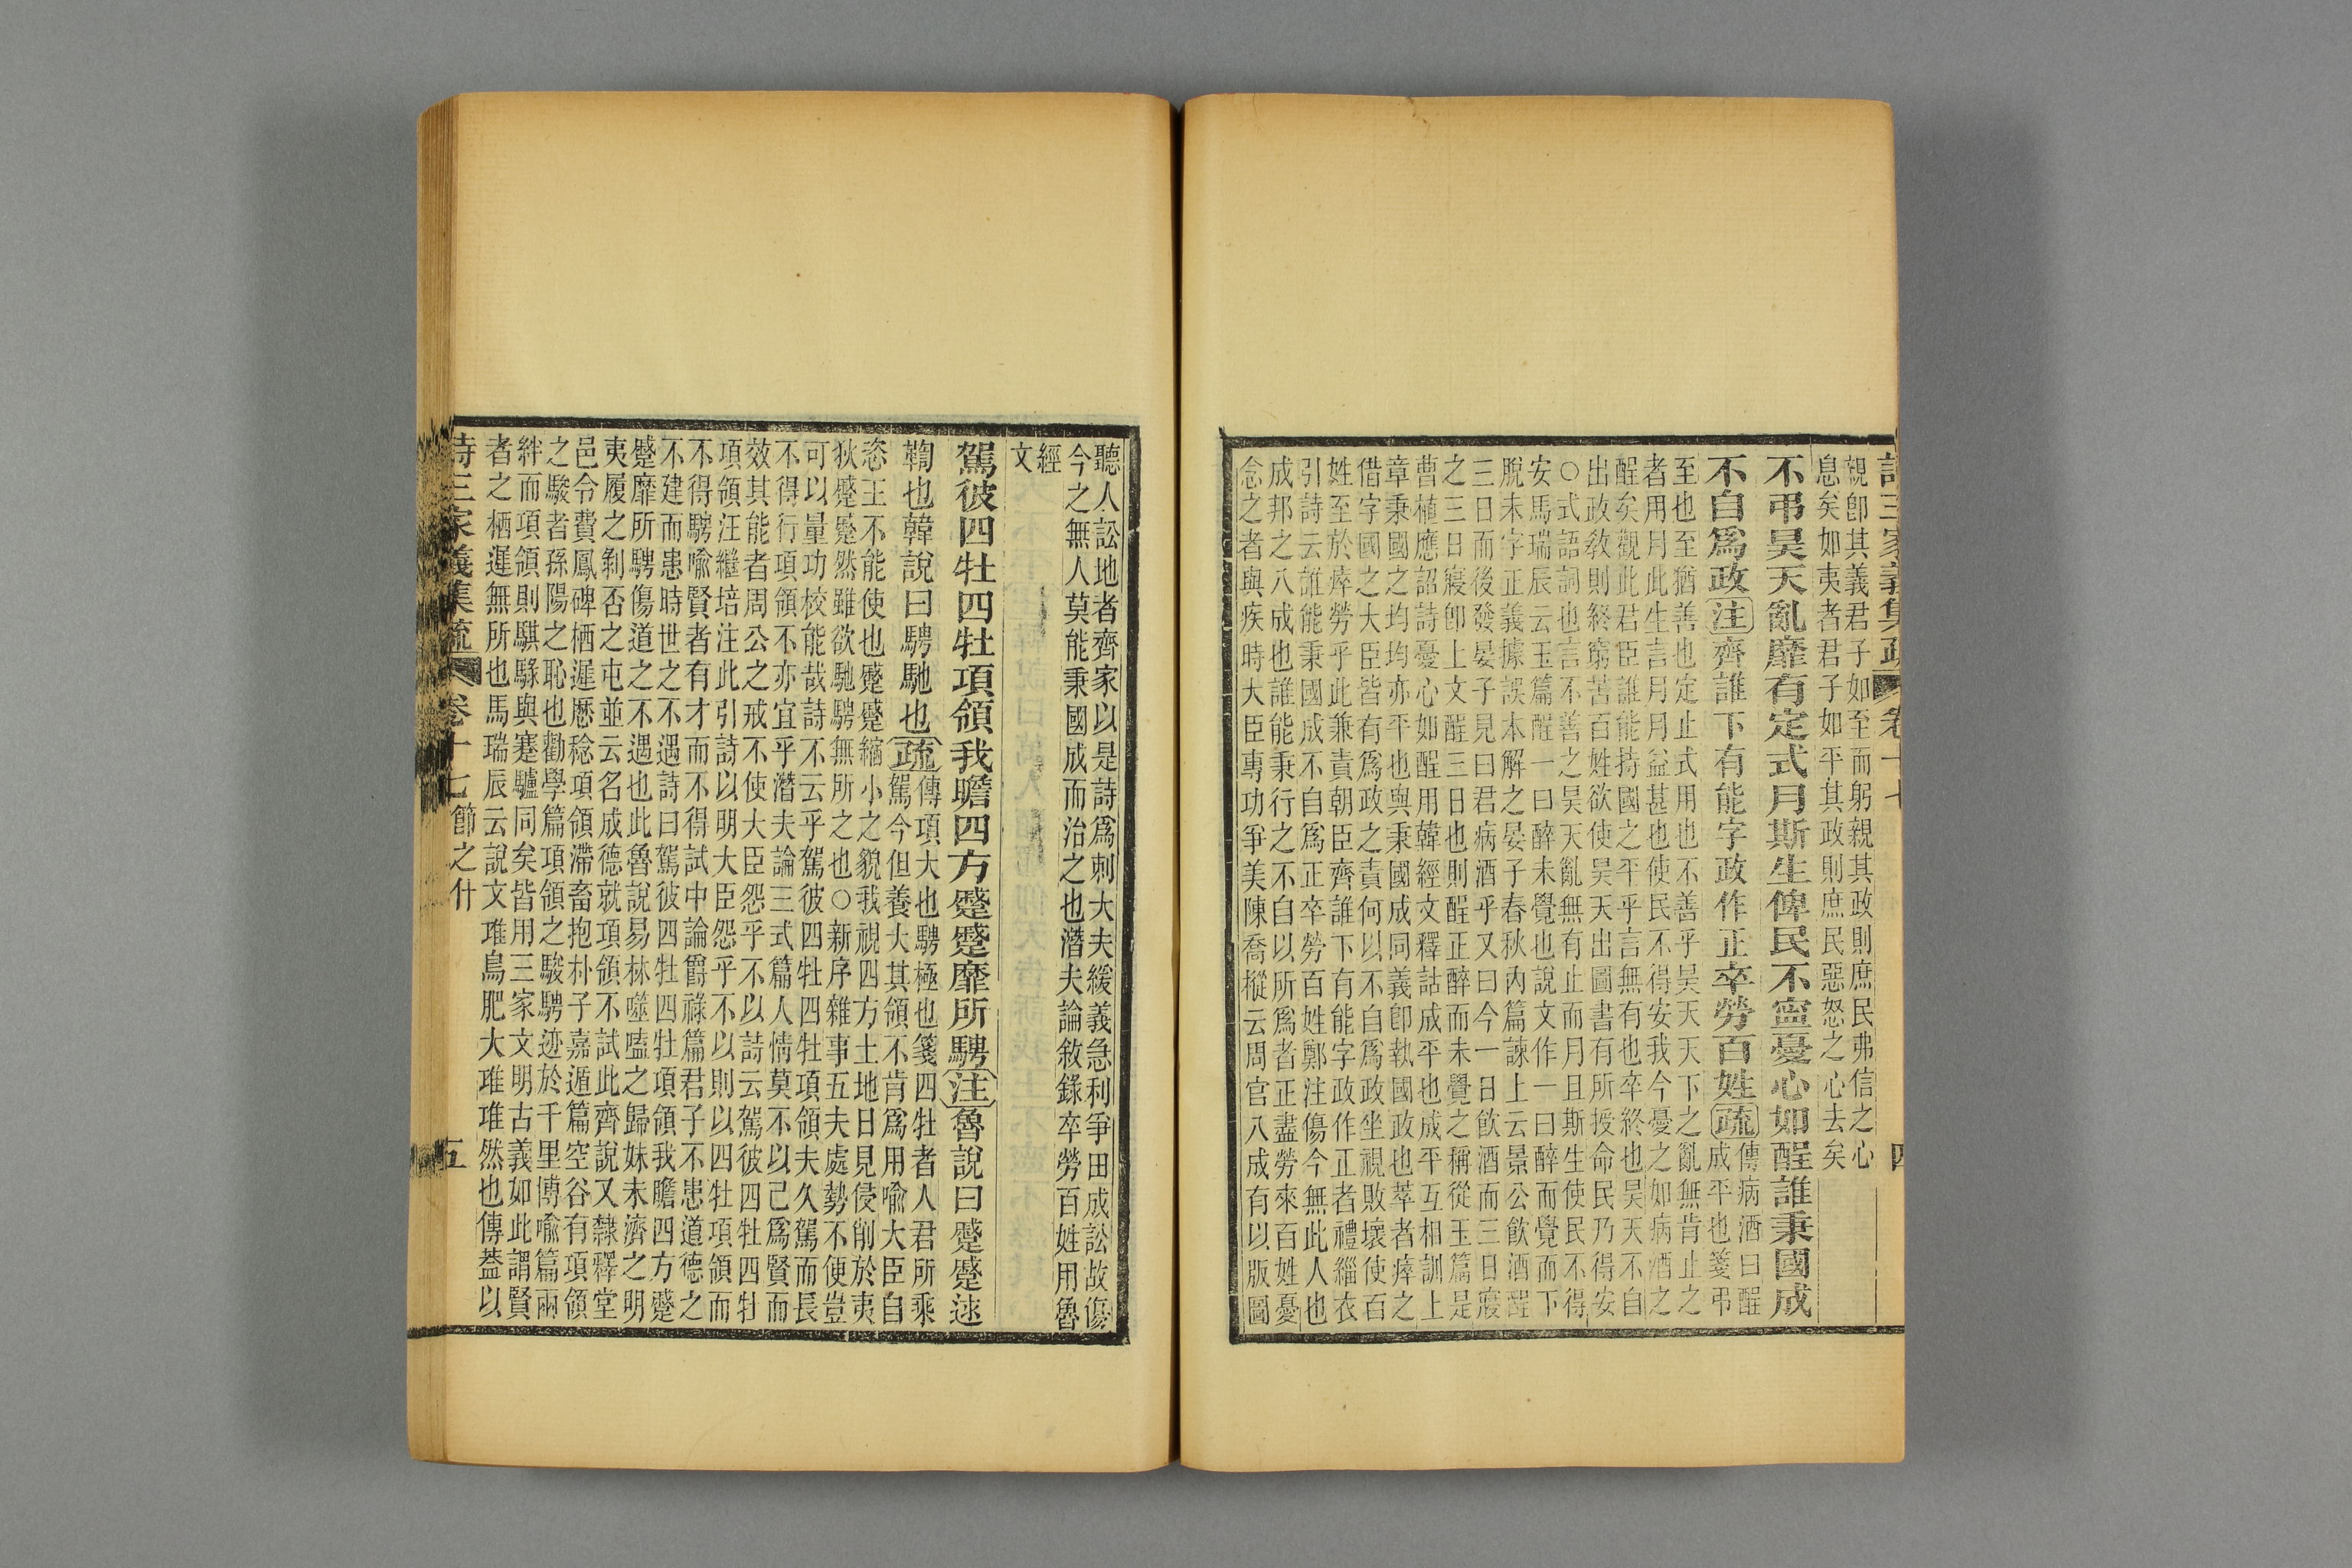 詩三家義集疏 卷十七 四
親卽其義君子如至而躬親其政則庶民弗信之心
息矣如夷者君子如平其政則庶民惡怒之心去矣
不弔昊天亂靡有定式月斯生俾民不寧憂心如酲誰秉國成
不自爲政注齊誰下有能字政作正卒勞百姓疏傳病酒曰酲
成平也箋弔
至也至猶善也定止式用也不善乎昊天天下之亂無肯止之
者用月此生言月月益甚也使民不得安我今憂之如病酒之
酲矣觀此君臣誰能持國之平乎言無有也卒終也昊天不自
出政敎則終窮苦百姓欲使昊天出圖書有所授命民乃得安
○式語詞也言不善之昊天亂無有止而月且斯生使民不得
安馬瑞辰云玉篇酲一曰醉未覺也說文作一曰醉而覺而下
脫未字正義據誤本解之晏子春秋內篇諫上云景公飮酒酲
三日而後發晏子見曰君病酒乎又曰今一日飮酒而三日寢
之三日寢卽上文酲三日也則酲正醉而未覺之稱從玉篇是
曹植應詔詩憂心如酲用韓經文釋詁成平也成平互相訓上
章秉國之均均亦平也與秉國成同義卽執國政也萃者瘁之
借字國之大臣皆有爲政之責何以不自爲政坐視敗壞使百
姓至於瘁勞乎此兼責朝臣齊誰下有能字政作正者禮緇衣
引詩云誰能秉國成不自爲正卒勞百姓鄭注傷今無此人也
成邦之八成也誰能秉行之不自以所爲者正盡勞來百姓憂
念之者與疾時大臣專功爭美陳喬樅云周官八成有以版圖
聽人訟地者齊家以是詩爲刺大夫緩義急利爭田成訟故傷
今之無人莫能秉國成而治之也潛夫論敘錄卒勞百姓用魯
經
文
駕彼四牡四牡項領我瞻四方蹙蹙靡所騁注魯說曰蹙蹙速
鞫也韓說曰騁馳也疏傳項大也騁極也箋四牡者人君所乘
駕今但養大其領不肯爲用喻大臣自
恣王不能使也蹙蹙縮小之貌我視四方土地日見侵削於夷
狄蹙蹙然雖欲馳騁無所之也○新序雜事五夫處勢不便豈
可以量功校能哉詩不云乎駕彼四牡四牡項領夫久駕而長
不得行項領不亦宜乎潛夫論三式篇人情莫不以己爲賢而
效其能者周公之戒不使大臣怨乎不以詩云駕彼四牡四牡
項領汪繼培注此引詩以明大臣怨乎不以則以四牡項領而
不得騁喻賢者有才而不得試中論爵祿篇君子不患道德之
不建而患時世之不遇詩曰駕彼四牡四牡項領我瞻四方蹙
蹙靡所騁傷道之不遇也此魯說易林噬嗑之歸妹未濟之明
夷履之剝否之屯並云名成德就項領不試此齊說又隸釋堂
邑令費鳳碑栖遲歷稔項領滯畜抱朴子嘉遁篇空谷有項領
之駿者孫陽之恥也勸學篇項領之駿騁迹於千里博喻篇兩
絆而項領則騏騄與蹇驢同矣皆用三家文明古義如此謂賢
者之栖遲無所也馬瑞辰云說文琟鳥肥大琟琟然也傳蓋以
詩三家義集疏 卷十七 節之什 五